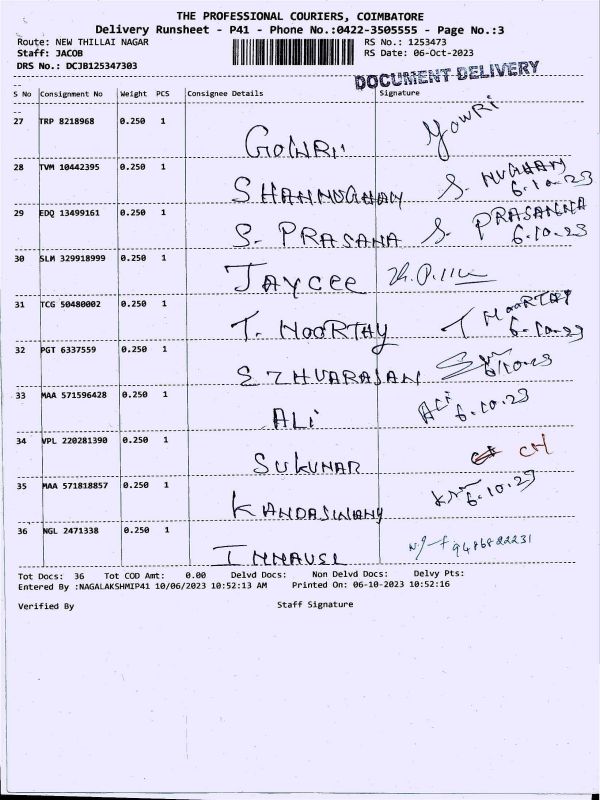 THE PROFESSIONAL COURIERS, COIMBATORE
Delivery Runsheet - P41 - Phone No.:0422-3505555 - Page No.:3
Route: NEW THILLAI NAGAR RS No.: 1253473
Staff: JACOB RS Date: 06-Oct-2023
DRS No.: DCJB125347303
DOCUMENT DELIVERY
S No Consignment No Weight PCS Consignee Details Signature
27 TRP 8218968 0.250 1
GOWRI Gowri
28 TVM 10442395 0.250 1
SHANMUGHAM S. MUGHAM
6.10.23
29 EDQ 13499161 0.250 1
S. PRASANA S. PRASANNA
6.10.23
30 SLM 329918999 0.250 1
JAYCEE
31 TCG 50480002 0.250 1
T. MOORTHY T MOORTHY
6.10.23
32 PGT 6337559 0.250 1
EZHUARASAN 6/10.23
33 MAA 571596428 0.250 1
ALi ALi
6.10.23
34 VPL 220281390 0.250 1
SUKUMAR CH
35 MAA 571818857 0.250 1
KANDASWAMY 6.10.23
36 NGL 2471338 0.250 1
9486822231
Tot Docs: 36 Tot COD Amt: 0.00 Delvd Docs: Non Delvd Docs: Delvy Pts:
Entered By :NAGALAKSHMIP41 10/06/2023 10:52:13 AM Printed On: 06-10-2023 10:52:16
Verified By Staff Signature